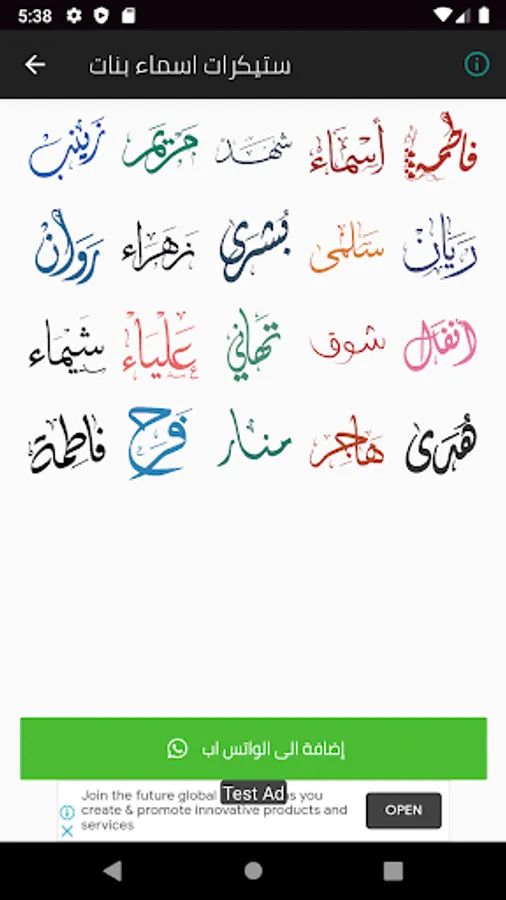 5:38
ستيكرات اسماء بنات
فاطمة أسماء شهد مريم زينب
ريان سلمى بشرى زهراء روان
أنفال شوق تهاني علياء شيماء
هدى هاجر منار فرح فاطمة
إضافة الى الواتس اب
Join the future global
s you
Test Ad
create & promote innovative products and
services
OPEN